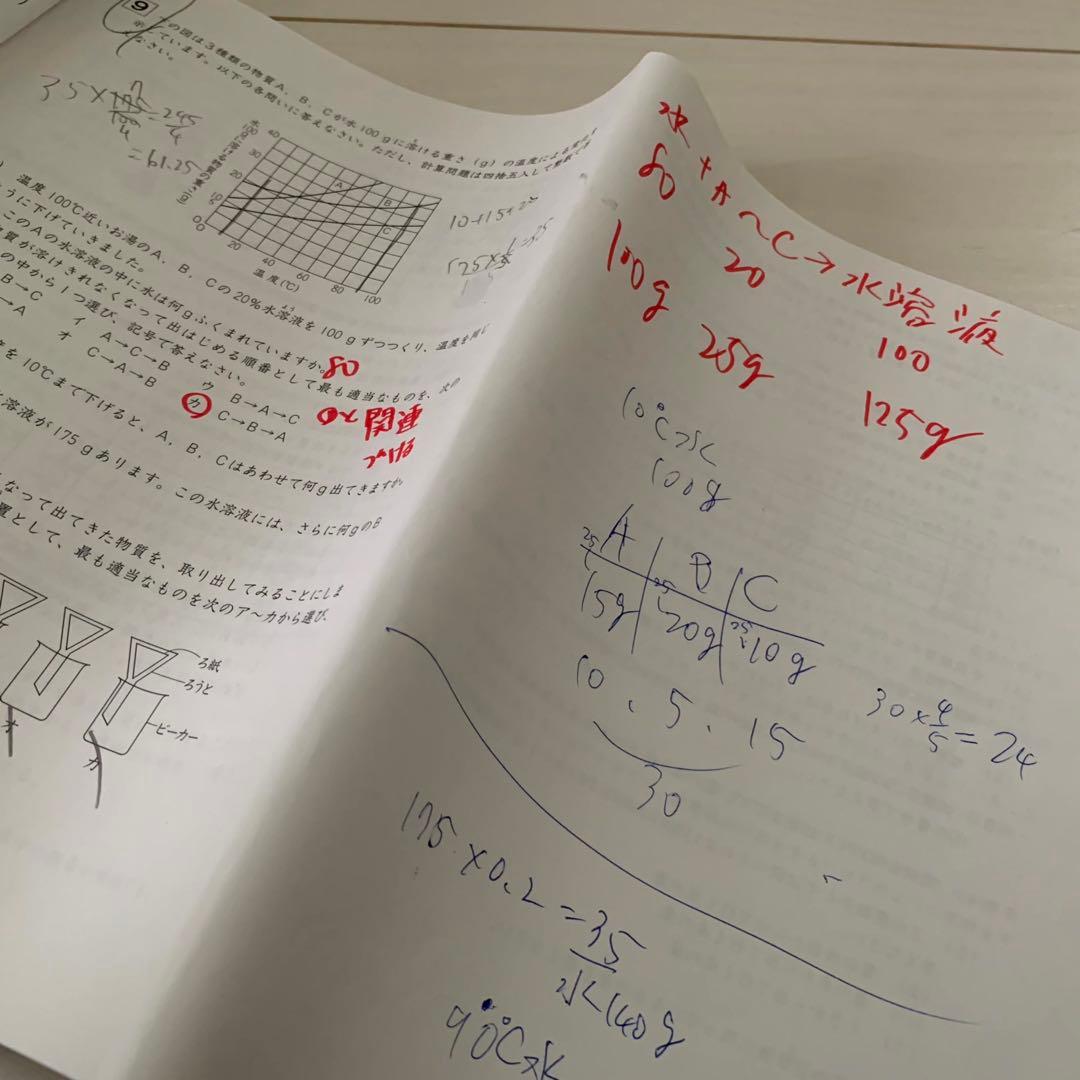 9
の図は3種類の物質A、B、Cが水100gに溶ける重さ(g)の温度による
しています。以下の各問いに答えなさい。ただし、計算問題は四捨五入して整数で
なさい。
35×
=245/4
=61.25
40
30
20
10
0
A
B
C
0
20
40
60
80
100
温度(℃)
温度100℃近いお湯のA、B、Cの20%水溶液を100gずつつくり、温度を同じ
ように下げていきました。
このAの水溶液の中に水は何gふくまれていますか。
80
物質が溶けきれなくなって出はじめる順番として最も適当なものを、次の
の中から1つ選び、記号で答えなさい。
B→C
イ A→C→B
ウ B→A→C
→A
オ C→A→B
カ C→B→A
10℃まで下げると、A、B、Cはあわせて何g出てきますか。
溶液が175gあります。この水溶液には、さらに何gのB
なって出てきた物質を、取り出してみることにしま
置として、最も適当なものを次のア〜カから選び、
ろ紙
ろうと
ビーカー
オ
カ
水+A〜C→水溶液
80 20 100
100g 25g 125g
10℃水
100g
A B C
25 25 25
15g 20g 10g
10、5、15
30
30×4/5=24
175×0.2=35
水140g
90℃水